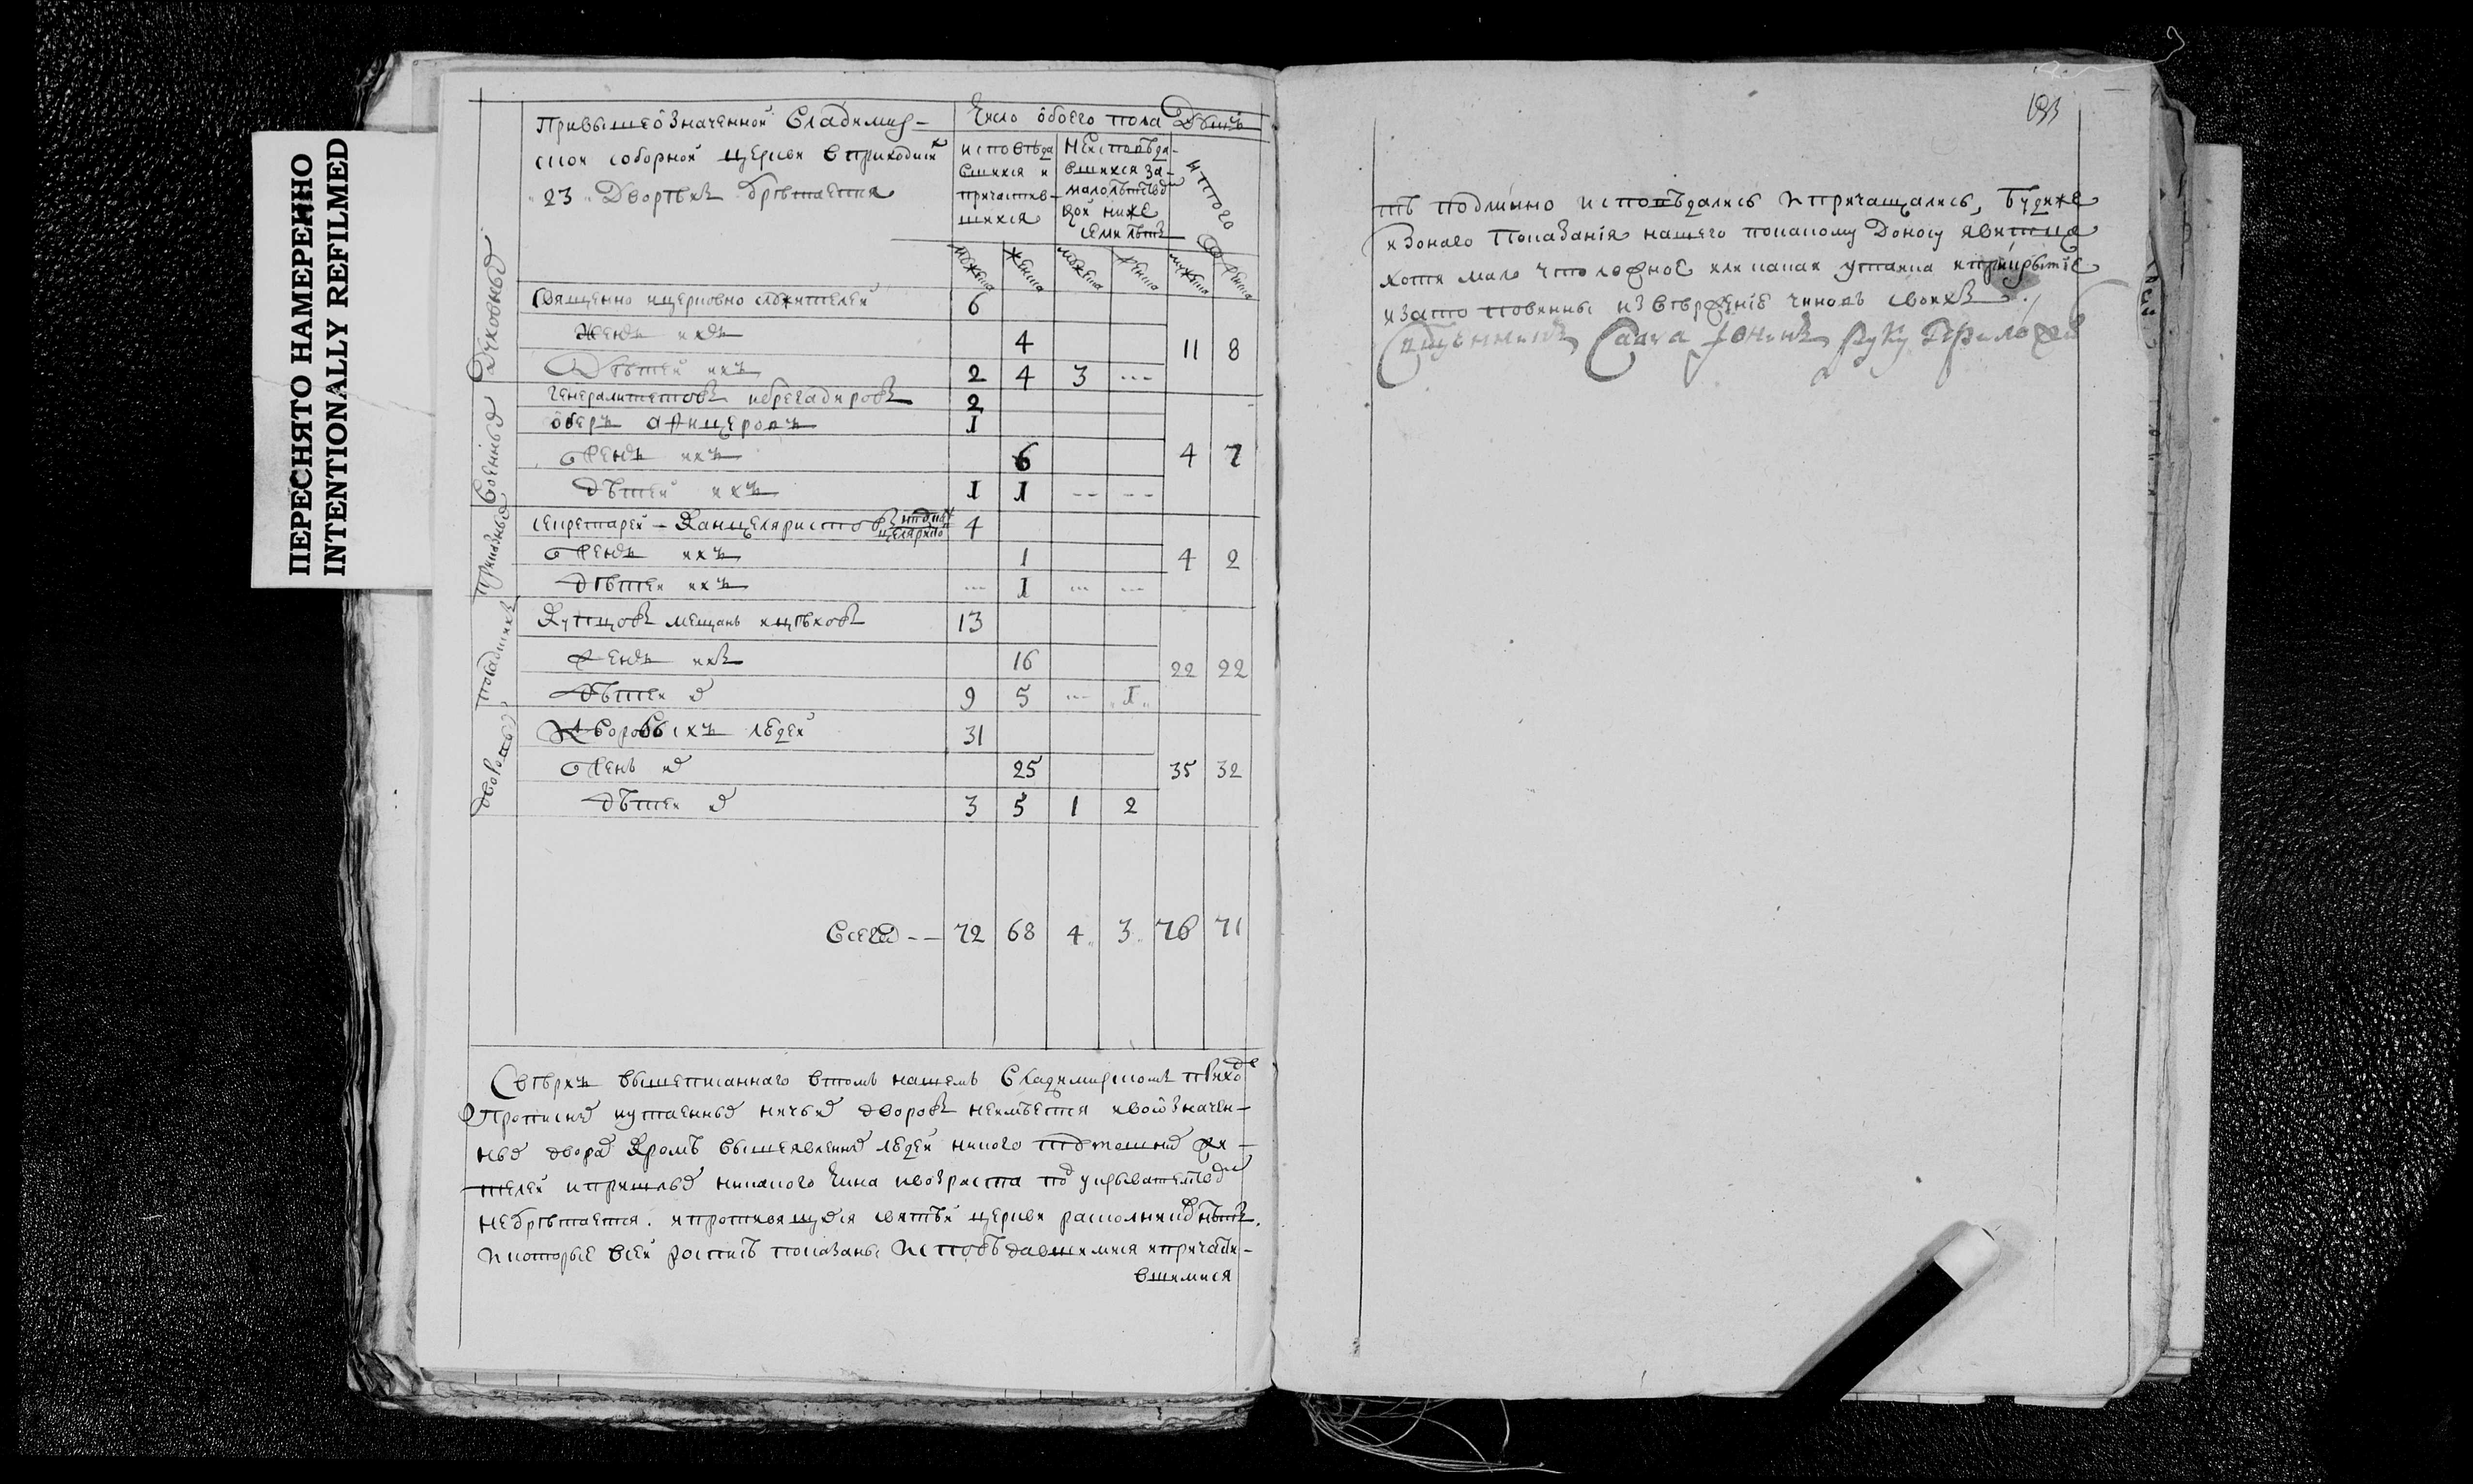 ПЕРЕСНЯТО НАМЕРЕННО
INTENTIONALLY REFILMED
При вышеозначенной Владимир-
ской соборной церкви в приходских
23 Дворѣхъ обрѣтается
Число обоего пола душъ
исповѣда
вшихся и
причастив-
шихся
Неисповѣда-
вшихся за-
малолѣтство
ниже
семи лѣтъ
итого
мужеска
женска
мужеска
женска
мужеска
женска
Духовныхъ
Священно и церковно служителей 6
Женъ ихъ 4 11 8
Дѣтей ихъ 2 4 3 ---
Военныхъ
Генералитетовъ и брегадировъ 2
Оберъ афицеровъ 1
Женъ ихъ 6 4 7
Дѣтей ихъ 1 1 -- --
Приказныхъ
секретарей – Канцеляристовъ и подкан
целяристо 4
Женъ ихъ 1 4 2
Дѣтей ихъ --- 1 --- ---
Посадскихъ
Купцовъ мещанъ и цѣховъ 13
Женъ ихъ 16 22 22
Дѣтей их 9 5 --- 1
дворовых
Дворовыхъ людей 31
Женъ их 25 35 32
Дѣтей их 3 5 1 2
Всего -- 72 68 4 3 76 71
Сверхъ вышеписаннаго в томъ нашемъ Владимирскомъ приходе
прописных и утаенных ничьих дворовъ неимѣется и во означен-
ных дворах Кромѣ вышеявленных людей никого тутошних жи-
телей и пришлых никакого чина и возраста под укрывательством
не обрѣтается. и противящихся святѣй церкви раскольников нѣтъ.
И которые в сей росписѣ показаны Исповѣдавшимися и причасти-
вшимися
193
тѣ подлинно исповѣдались и причащались, буде же
из онаго Показанія нашего по какому Доносу явится
хотя мало что ложное или какая утайка и прикрытие
и за то повинны извѣржению чиновъ своихъ
Священникъ Савва Іонинъ руку приложилъ